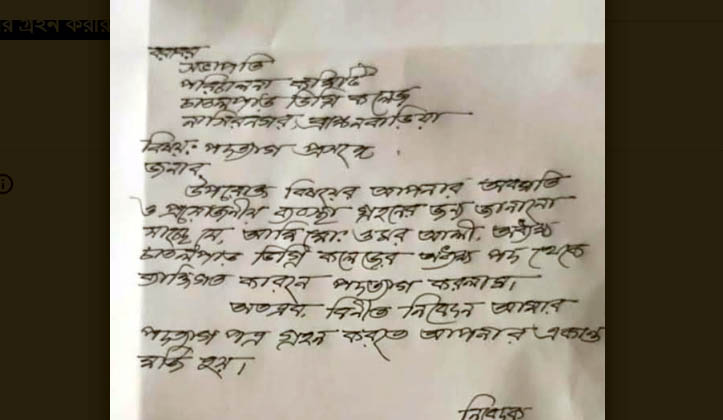 র গ্রহন করার
বরাবর
সভাপতি
পরিচালনা কমিটি
চাতলপাড় ডিগ্রি কলেজ
নাসিরনগর, ব্রাহ্মনবাড়িয়া
বিষয়: পদত্যাগ প্রসঙ্গে।
জনাব,
উপরোক্ত বিষয়ের আপনার অবগতি
ও প্রয়োজনীয় ব্যবস্থা গ্রহনের জন্য জানানো
যাচ্ছে যে, আমি মো: ওমর আলী, অধ্যক্ষ
চাতলপাড় ডিগ্রি কলেজের অধ্যক্ষ পদ থেকে
ব্যক্তিগত কারনে পদত্যাগ করলাম।
অতএব, বিনীত নিবেদন আমার
পদত্যাগ পত্র গ্রহন করতে আপনার একান্ত
মর্জি হয়।
নিবেদক